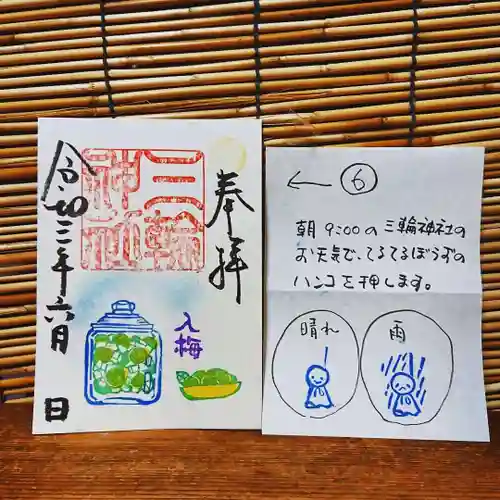 奉拝
三輪
神社
令和三年六月
日
入梅
⑥
朝9:00の三輪神社の
お天気で、てるてるぼうずの
ハンコを押します。
晴れ
雨